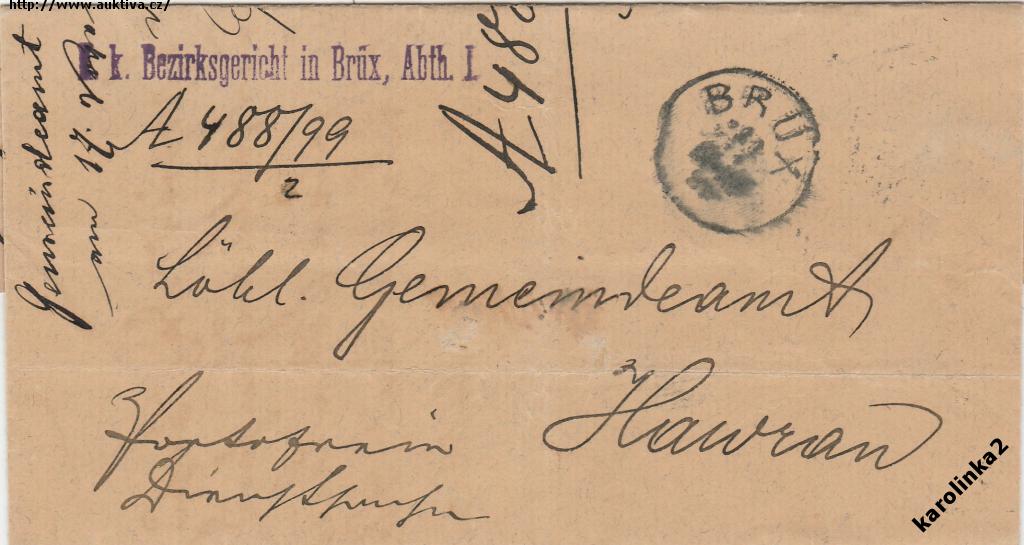 http://www.auktiva.cz/
k. k. Bezirksgericht in Brüx, Abth. I.
A 488/99
2
A 488
BRÜX
Gemeindeamt
am
Löbl. Gemeindeamt
Hawran
Portofreie
Dienstsache
karolinka2